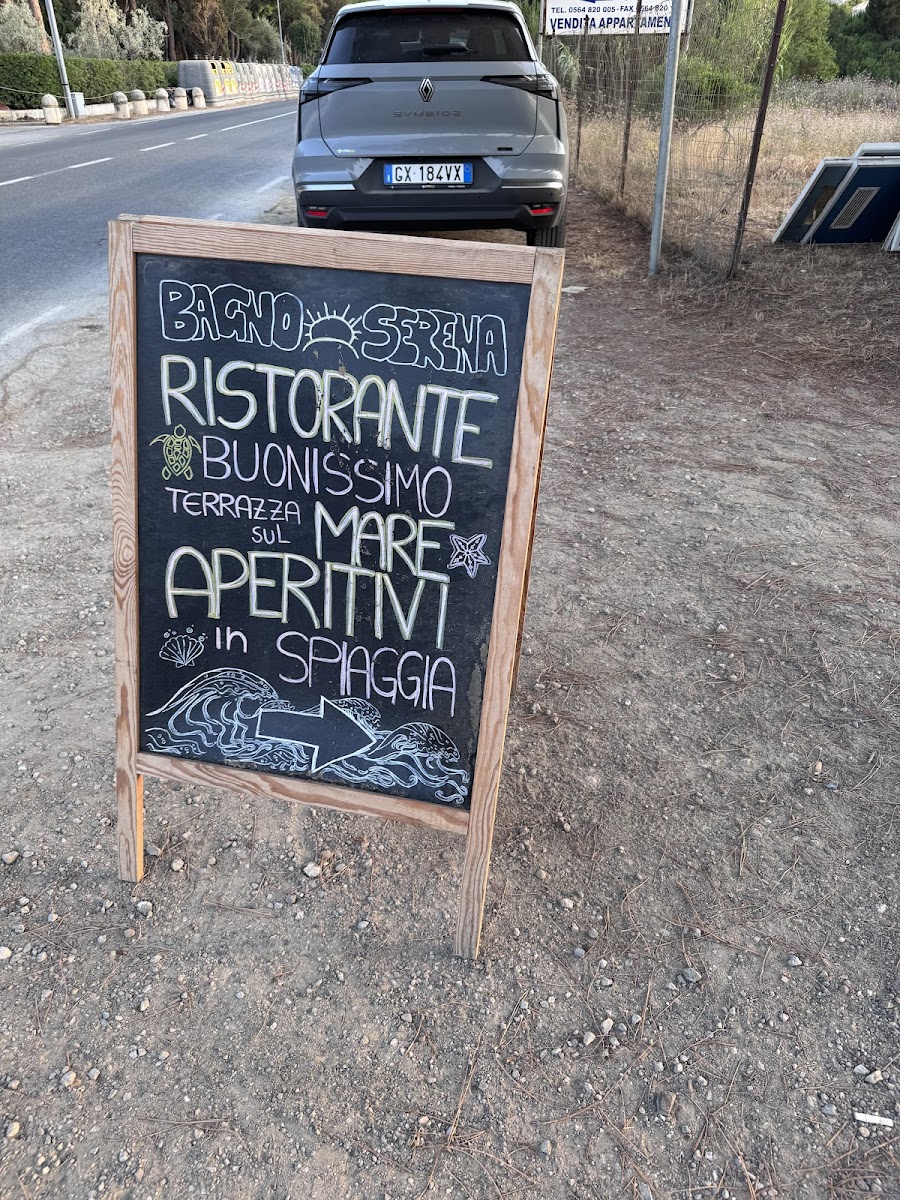 TEL. 0564 820 005 - FAX 0564 820
VENDITA APPARTAMEN
SYMBIOZ
GX 184VX
BAGNO SERENA
RISTORANTE
BUONISSIMO
TERRAZZA
SUL MARE
APERITIVI
in SPIAGGIA